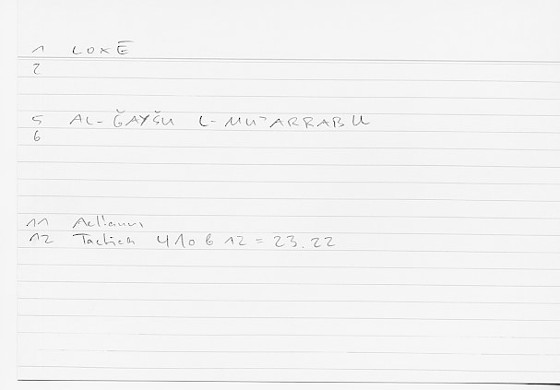 1 LOXĒ
2
5 AL-ĞAYŠU L-MUʾARRABU
6
11 Aelianus
12 Tactica 410 b 12 = 23.22